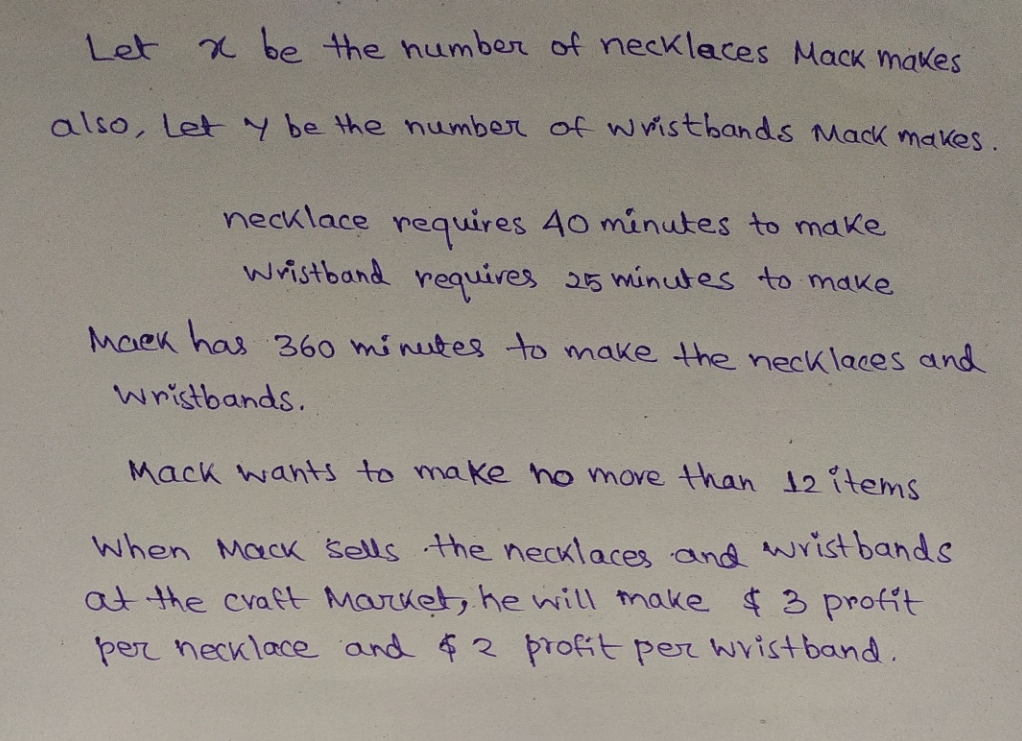 Let x be the number of necklaces Mack makes
also, Let y be the number of wristbands Mack makes.
necklace requires 40 minutes to make
Wristband requires 25 minutes to make
Mack has 360 minutes to make the necklaces and
Wristbands.
Mack wants to make no more than 12 items
When Mack sells the necklaces and wristbands
at the craft Market, he will make $ 3 profit
per necklace and $ 2 profit per wristband.